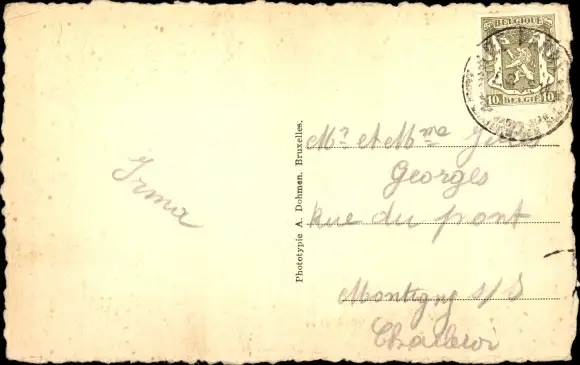 BELGIQUE
10 BELGIË 10
Mr et Mme
Georges
Rue du pont
Montigny s/S
Charleroi
Irma
Phototypie A. Dohmen, Bruxelles.